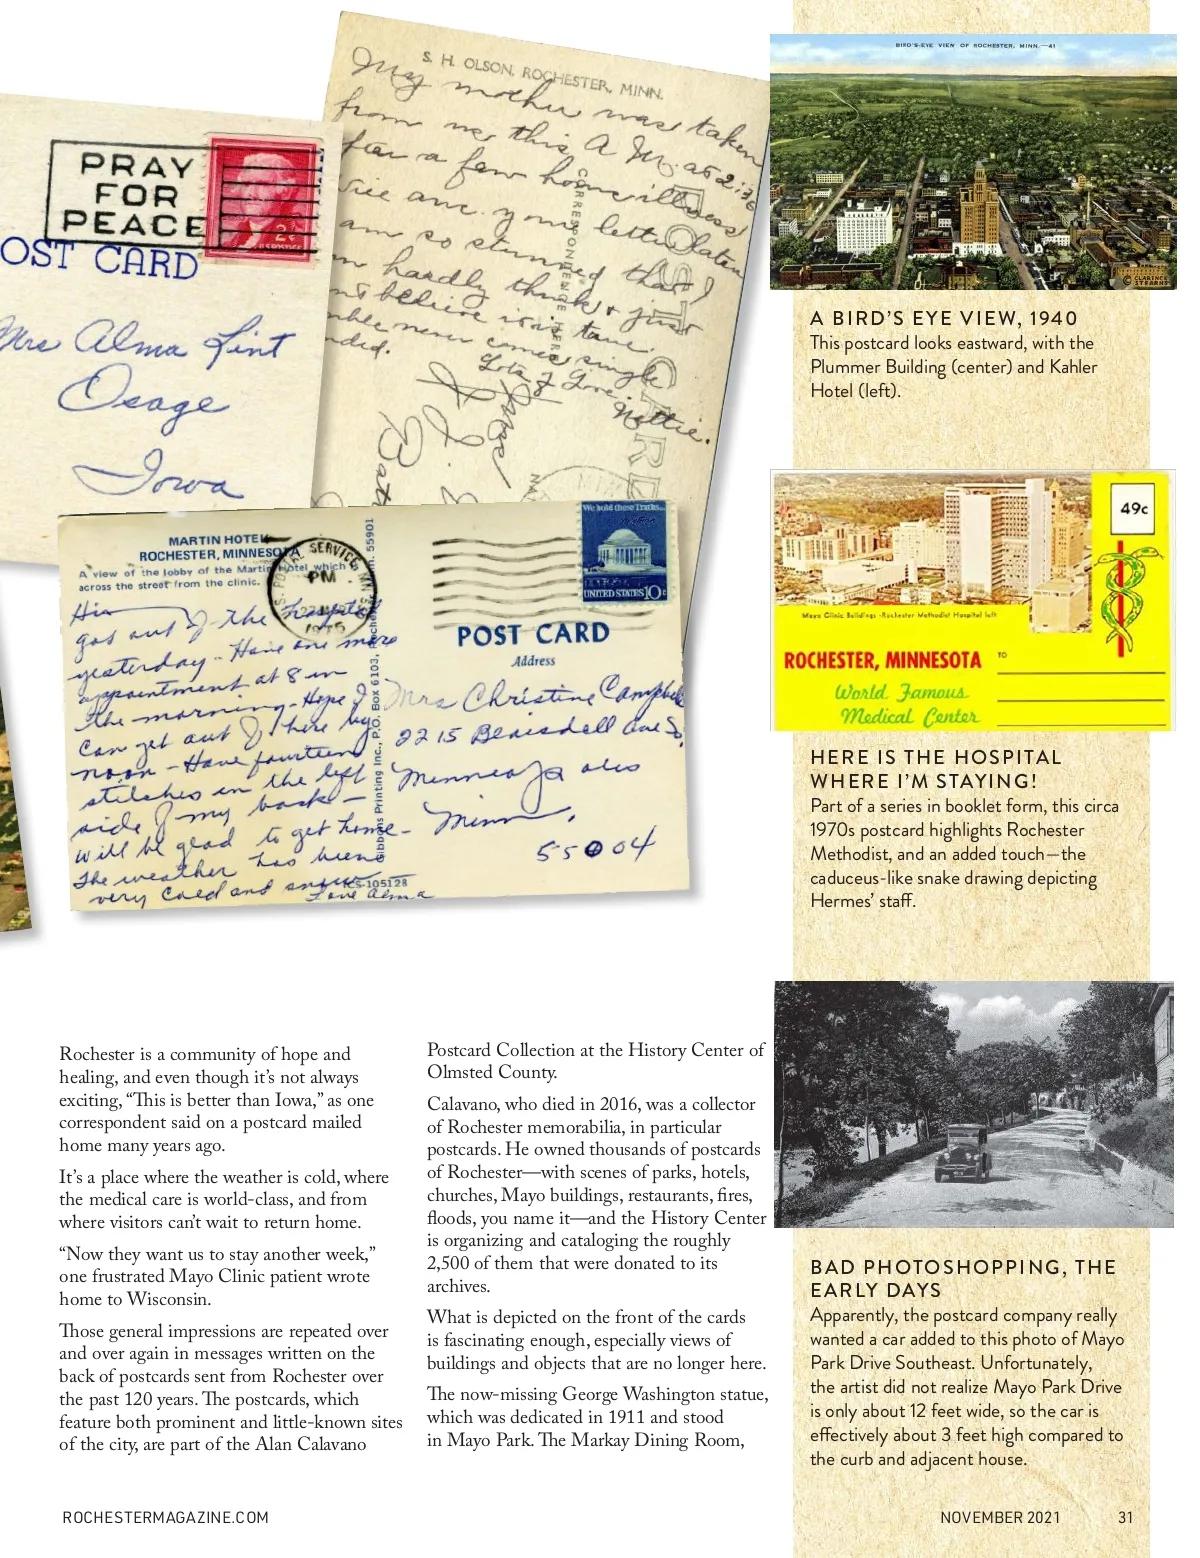 PRAY
FOR
PEACE
2¢
U.S. POSTAGE
OST CARD
Mrs Alma Lint
Osage
Iowa
S. H. OLSON, ROCHESTER, MINN.
My mother was taken
from me this A M. at 2:36
after a few hours illness
ice anc. your letter later
am so stunned that I
hardly think & just
believe it is true.
never comes single
nded.
Lots of Love. Nettie.
POST CARD
CORRESPONDENCE HERE
MARTIN HOTEL
ROCHESTER, MINNESOTA
A view of the lobby of the Martin Hotel which is
across the street from the clinic.
Hi
got out of the hospital
yesterday - Have one more
appointment at 8 in
the morning - Hope I
can get out of here by
noon - Have fourteen
stitches in the left
side of my back -
Will be glad to get home -
The weather has been
very cold and snow
Love Alma
U.S. POSTAL SERVICE
PM
1975
Gibbons Printing Inc., P.O. Box 6103, Rochester, Minn. 55901
KS-105128
We hold these Truths...
UNITED STATES 10c
POST CARD
Address
Mrs Christine Campbell
2215 Blaisdell Ave So.
Minneapolis
Minn,
55004
BIRD'S-EYE VIEW OF ROCHESTER, MINN.—41
© CLARENCE
STEARNS
A BIRD'S EYE VIEW, 1940
This postcard looks eastward, with the
Plummer Building (center) and Kahler
Hotel (left).
49c
Mayo Clinic Buildings - Rochester Methodist Hospital left
ROCHESTER, MINNESOTA
TO
World Famous
Medical Center
HERE IS THE HOSPITAL
WHERE I'M STAYING!
Part of a series in booklet form, this circa
1970s postcard highlights Rochester
Methodist, and an added touch—the
caduceus-like snake drawing depicting
Hermes' staff.
Rochester is a community of hope and
healing, and even though it's not always
exciting, “This is better than Iowa,” as one
correspondent said on a postcard mailed
home many years ago.
It's a place where the weather is cold, where
the medical care is world-class, and from
where visitors can't wait to return home.
“Now they want us to stay another week,”
one frustrated Mayo Clinic patient wrote
home to Wisconsin.
Those general impressions are repeated over
and over again in messages written on the
back of postcards sent from Rochester over
the past 120 years. The postcards, which
feature both prominent and little-known sites
of the city, are part of the Alan Calavano
Postcard Collection at the History Center of
Olmsted County.
Calavano, who died in 2016, was a collector
of Rochester memorabilia, in particular
postcards. He owned thousands of postcards
of Rochester—with scenes of parks, hotels,
churches, Mayo buildings, restaurants, fires,
floods, you name it—and the History Center
is organizing and cataloging the roughly
2,500 of them that were donated to its
archives.
What is depicted on the front of the cards
is fascinating enough, especially views of
buildings and objects that are no longer here.
The now-missing George Washington statue,
which was dedicated in 1911 and stood
in Mayo Park. The Markay Dining Room,
BAD PHOTOSHOPPING, THE
EARLY DAYS
Apparently, the postcard company really
wanted a car added to this photo of Mayo
Park Drive Southeast. Unfortunately,
the artist did not realize Mayo Park Drive
is only about 12 feet wide, so the car is
effectively about 3 feet high compared to
the curb and adjacent house.
ROCHESTERMAGAZINE.COM
NOVEMBER 2021
31